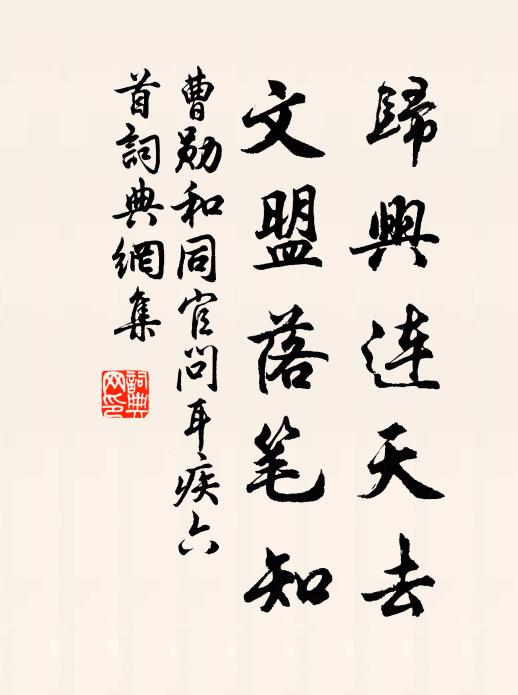 歸興连天去
文盟落笔知
曹勛和同官問耳疾六
首詞典網集
詞典
网印